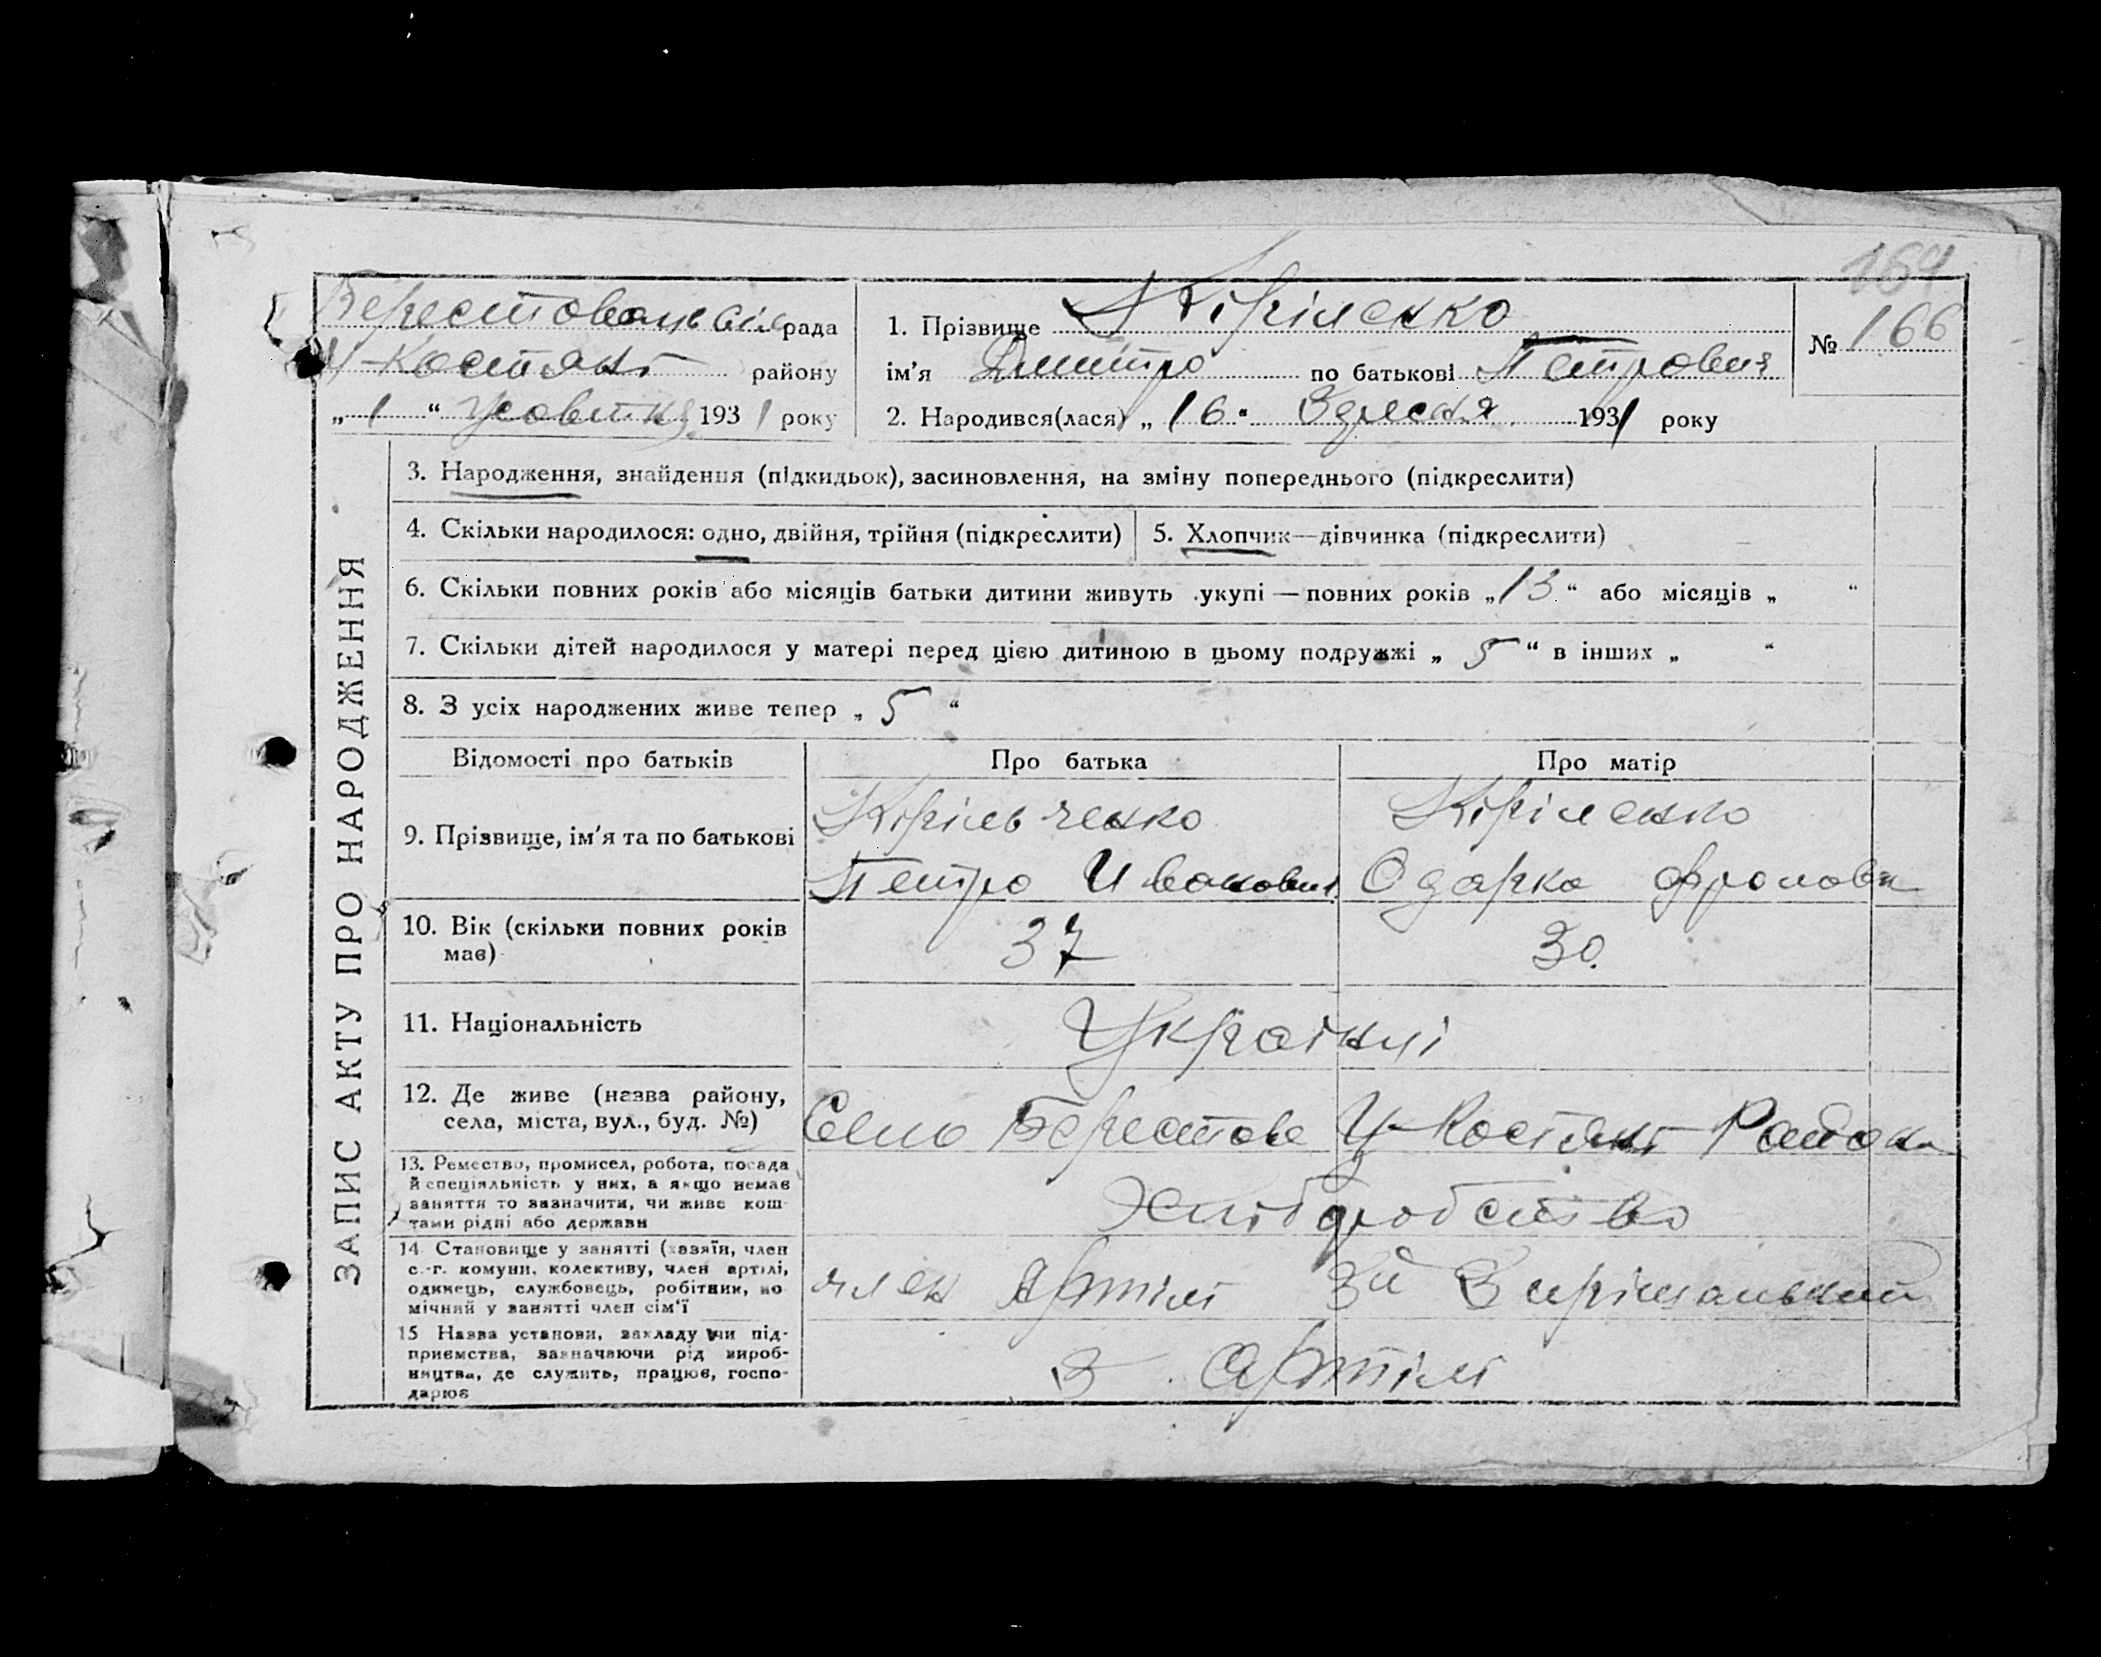 164
Берестовань сіл рада
У-Костянт району
„ 1 “ Жовтня 1931 року
1. Прізвище Кіріленко
ім’я Дмитро по батькові Петрович
№ 166
2. Народився(лася) „ 16 “ Здресня 1931 року
ЗАПИС АКТУ ПРО НАРОДЖЕННЯ
3. Народження, знайдення (підкидьок), засиновлення, на зміну попереднього (підкреслити)
4. Скільки народилося: одно, двійня, трійня (підкреслити)
5. Хлопчик—дівчинка (підкреслити)
6. Скільки повних років або місяців батьки дитини живуть укупі — повних років „ 13 “ або місяців „ “
7. Скільки дітей народилося у матері перед цією дитиною в цьому подружжі „ 5 “ в інших „ “
8. З усіх народжених живе тепер „ 5 “
Відомості про батьків
Про батька
Про матір
9. Прізвище, ім’я та по батькові
Кірільченко
Петро Иванович
Кіріленко
Одарка Фролови
10. Вік (скільки повних років
має)
37
30.
11. Національність
Українці
12. Де живе (назва району,
села, міста, вул., буд. №)
Село Берестове У-Костянт Район
13. Ремество, промисел, робота, посада
й спеціяльність у них, а якщо немає
заняття то зазначити, чи живе кош-
тами рідні або держави
Хлібробство
14. Становище у занятті (хазяїн, член
с.-г. комуни, колективу, член артілі,
одинець, службовець, робітник, по
мічний у занятті член сім’ї
член Артілі
15 Назва установи, закладу чи під-
приємства, зазначаючи рід вироб-
ництва, де служить, працює, госпо-
дарює
В Артілі